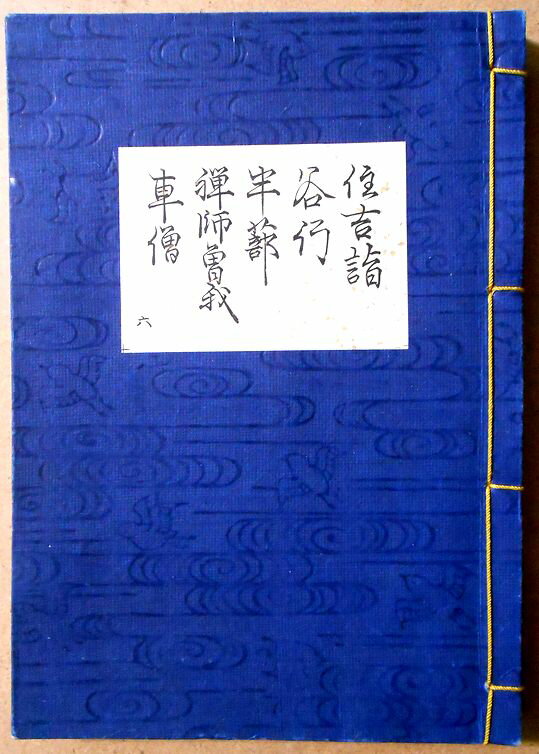 住吉詣
谷行
半蔀
禅師曽我
車僧
六